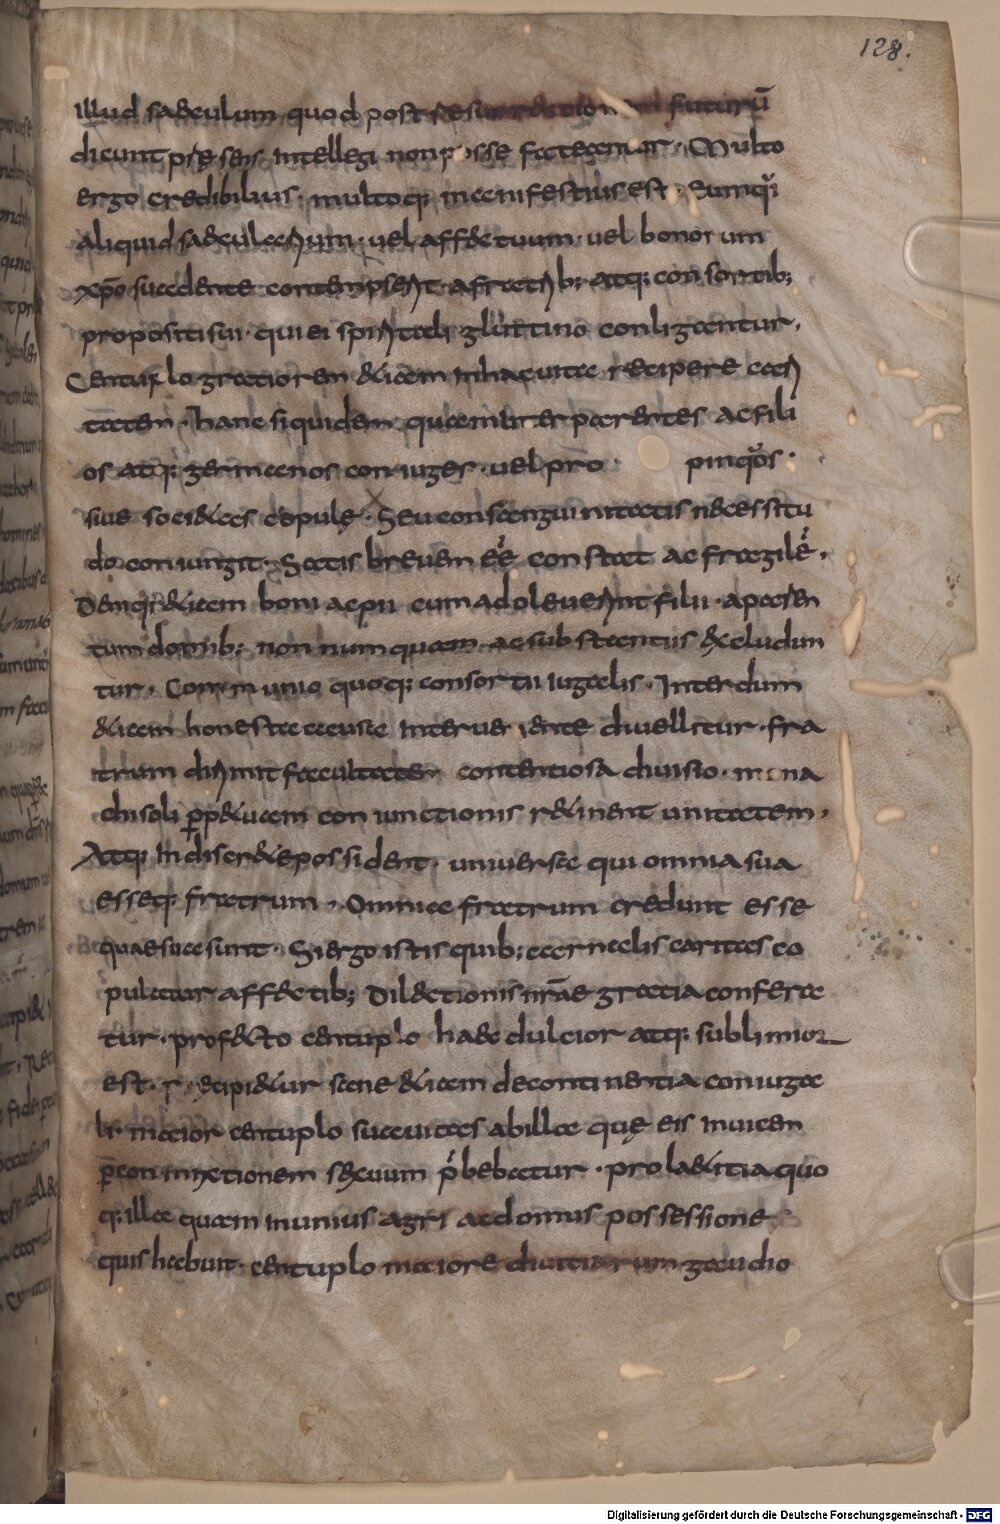 128.
illud saeculum quod post resurrectionem futurū
dicunt p̱ręsens intellegi non posse fateantur · Multo
ergo credibilius · multoq; manifestius est · Eum q'i
aliquid saecularium · vel affectuum · vel bonorum
xp̄o succedente contempserit · a fratrib; atq; consortib;
propositi sui · qui ei spiritali glutino conligantur ,
Centuplo gratiorem &iam in hac vita recipere cari
tatem · hanc siquidem quam inter parentes ac fili
os atq; germanos coniuges · vel pro pinq'os ·
sive soci&as copulę · Seu consanguinitatis necessitu
do coniungit · Satis brevem eē constat ac fragilē ,
Denq; &iam boni ac pii cum adoleverint filii · a paren
tum domib; non numquam ac substantiis excludun
tur , Communio quoq; consortii iugalis · Interdum
&iam honesta causa interveniente divellitur · fra
trum dirimit facultates contentiosa divisio · mona
chi soli p̱p&uam coniunctionis r&inent unitatem ,
Atq; indiscr&e possident · universa qui omnia sua
esse q; fratrum , Omnia fratrum credunt esse
quae sua sunt · Si ergo istis quib; carnalis caritas co
pulatur affectib; Dilectionis nr̄ae gratia confera
tur · profecto centuplo haec dulcior atq; sublimior
est · r ecipi&ur sane &iam de continentia coniuga
li · maior centuplo suavitas ab illa quę eis invicem
p̱ conmixtionem sexuum p̄bebatur · pro laetitia quo
q; illa quam in unius agri ac domus possessione
quis habuit · centuplo maiore divitiarum gaudio
Digitalisierung gefördert durch die Deutsche Forschungsgemeinschaft - DFG